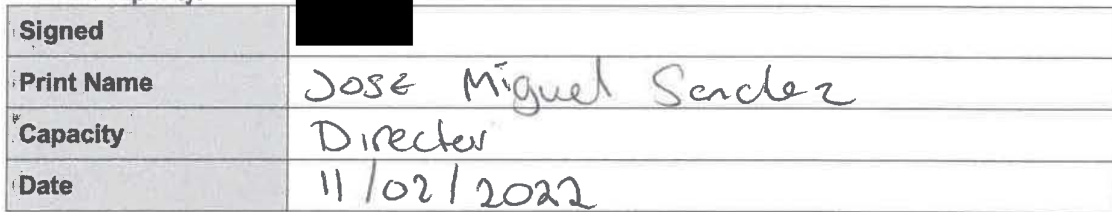 Signed
Print Name JOSE Miguel
Capacity Director
Date 11/02/2022